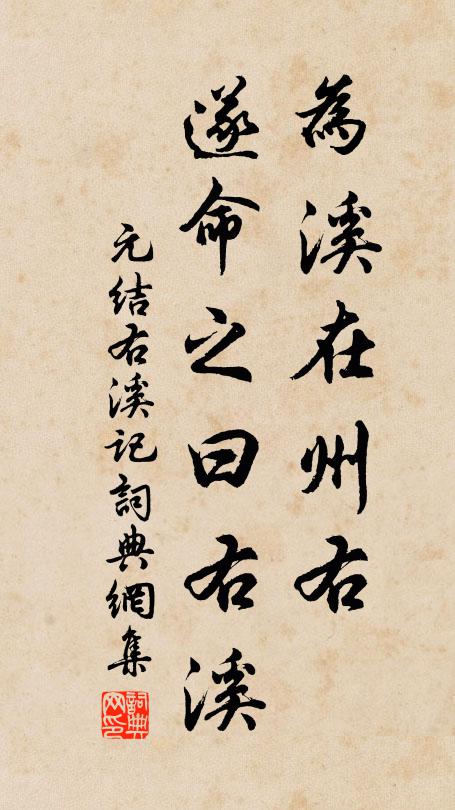 為溪在州右
遂命之曰右溪
元结右溪记詞典網集
詞典网印